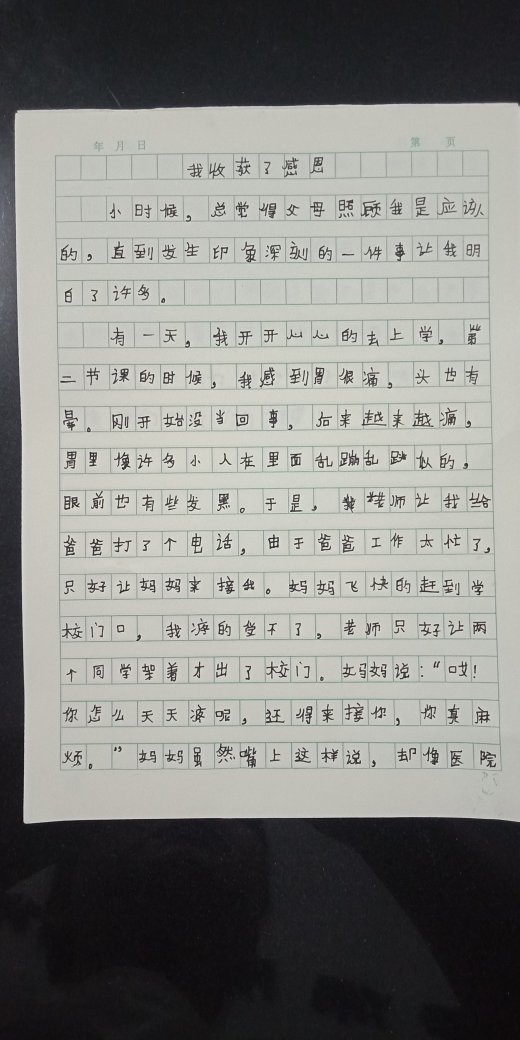 年 月 日 第 页
我收获了感恩
小时候，总觉得父母照顾我是应该
的，直到发生印象深刻的一件事让我明
白了许多。
有一天，我开开心心的去上学，第
二节课的时候，我感到胃很痛，头也有
晕。刚开始没当回事，后来越来越痛，
胃里像许多小人在里面乱蹦乱跳似的，
眼前也有些发黑。于是，老师让我给
爸爸打了个电话，由于爸爸工作太忙了，
只好让妈妈来接我。妈妈飞快的赶到学
校门口，我疼的受不了，老师只好让两
个同学架着才出了校门。妈妈说：“哎！
你怎么天天疼呢，还得来接你，你真麻
烦。”妈妈虽然嘴上这样说，却像医院